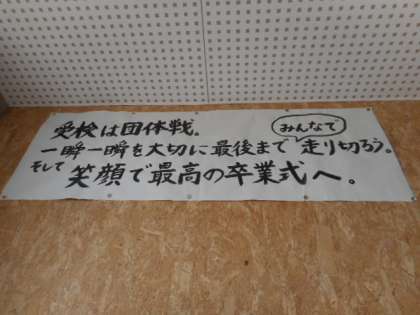 受検は団体戦。
みんなで
一瞬一瞬を大切に最後まで走り切ろう。
そして笑顔で最高の卒業式へ。